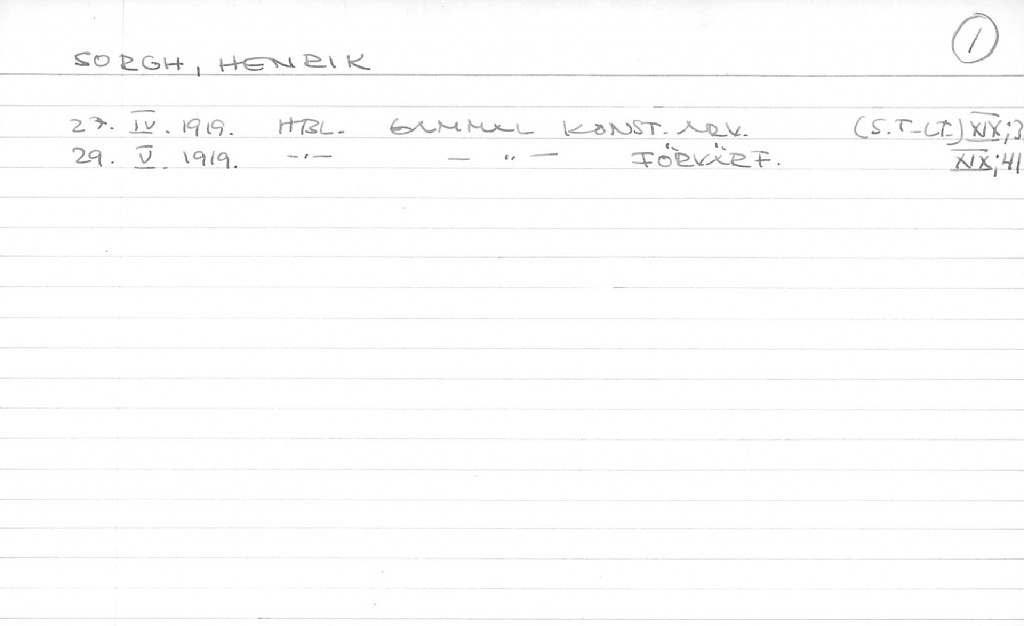 1
SORGH, HENRIK
27. IV. 1919. HBL. GAMMAL KONST. (S.T-LT.) XIX;3
29. V. 1919. -"- - " - FÖRVÄRF. XIX;41